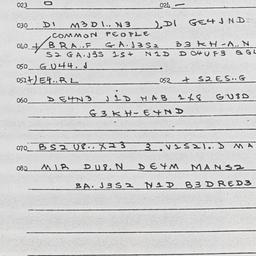 023
024 —
030 DI M3DI..N3 ).DI GE4JND
COMMON PEOPLE
040 + BRA..F GA.J3S2 B3KH-A..N
S2 GA.J3S 1S+ N1D D04UF3 BGL
050 GU44.J
051 +/E4..RL 052 + S2ES..G
060 DE4N3 J1D HAB 1X8 GU3D
G3KH-E4ND
070 BS2 U8..X23 3.V1521..D MA
080 MIR DU8.N DE4M MANS2
BA.J3S2 N1D B3DRED3